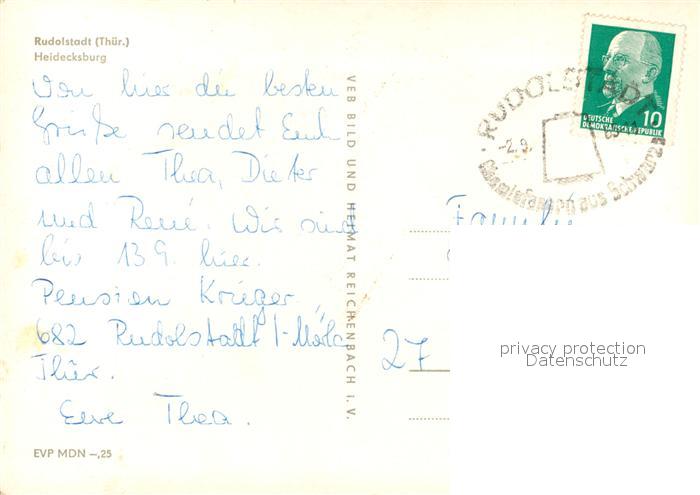 Rudolstadt (Thür.)
Heidecksburg
Von hier die besten
Grüße sendet Euch
allen Thea, Dieter
und René. Wir sind
bis 13 9. hier.
Pension Krieger
682 Rudolstadt 1-Mörla
Thür.
Eure Thea.
EVP MDN –,25
VEB BILD UND HEIMAT REICHENBACH I. V.
RUDOLSTADT
-2. 9.
aus Schwarza
DEUTSCHE
DEMOKRATISCHE REPUBLIK
10
Familie
27
privacy protection
Datenschutz